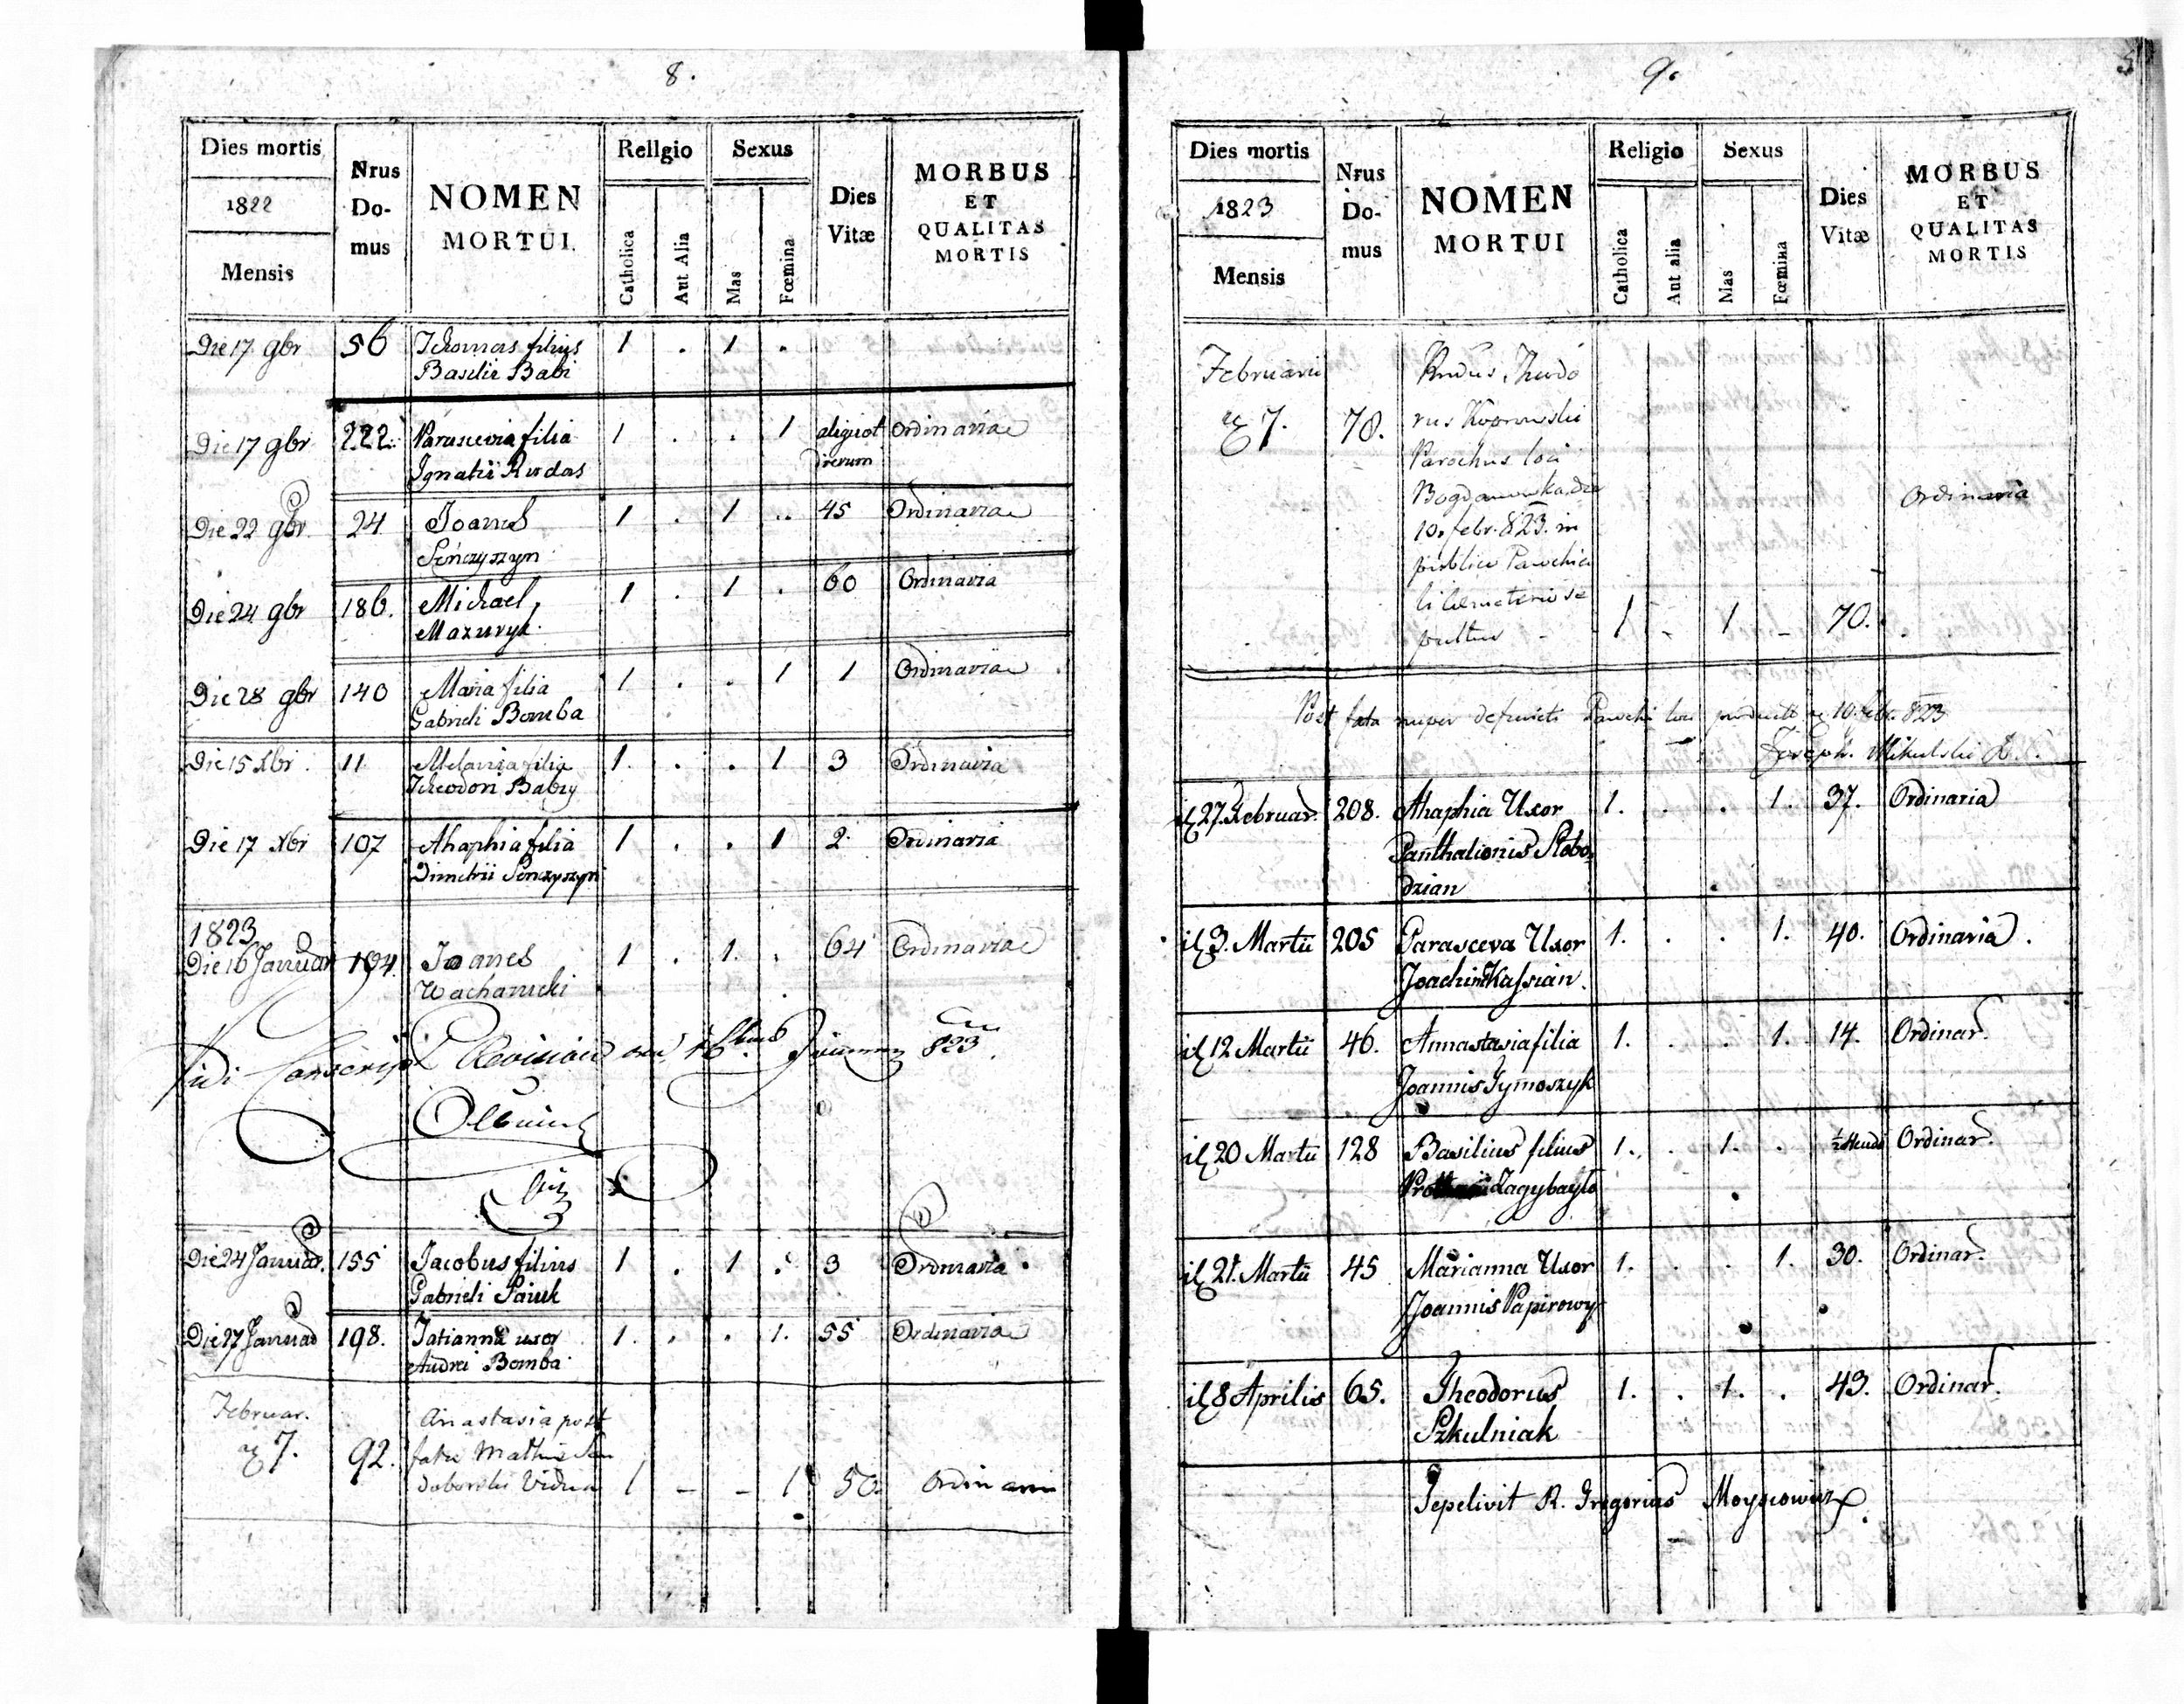 8.
Dies mortis
1822
Mensis
Nrus Do- mus
NOMEN MORTUI.
Religio
Catholica
Aut Alia
Sexus
Mas
Fœmina
Dies Vitæ
MORBUS ET QUALITAS MORTIS
Die 17 9br 56 Thomas filius 1 . 1 .
Basilii Babi
Die 17 9br 222 Parascevia filia 1 . . 1 aliquot Ordinaria
Ignatii Rudas dierum
Die 22 9br. 24 Joannes 1 . 1 .. 45 Ordinaria
Senczyszyn
Die 24 9br 186. Michael 1 . 1 . 60 Ordinaria
Mazuryk
Die 28 9br 140 Maria filia 1 . . 1 1 Ordinaria
Gabrieli Bomba
Die 15 Xbr. 11 Melania filia 1. . . 1 3 Ordinaria
Theodori Babiy
Die 17 Xbr 107 Ahaphia filia 1 . . 1 2 Ordinaria
Dimitrii Senczyszyn
1823
Die 16 Januar 194 Joannes 1 . 1. . 64 Ordinaria
Wachanicki
823.
Die 24 Januar. 155 Jacobus filius 1 . 1 . 3 Ordinaria
Gabrieli
Die 27 Januar 198. Tatianna uxor 1. . . 1. 55 Ordinaria
Andrei Bomba
Februar. Anastasia post
7. 92. fata Mathei
Vidua 1 - - 1 50. Ordinaria
9.
Dies mortis
1823
Mensis
Nrus Do- mus
NOMEN MORTUI
Religio
Catholica
Aut alia
Sexus
Mas
Fœmina
Dies Vitæ
MORBUS ET QUALITAS MORTIS
Februarii Rndus Theodo
7. 70. rus
Parochus loci
Bogdanowka die Ordinaria
10. febr. 823. in
publico Parochia
li Cemeterio se
pultus - 1 - 1 - 70.
Post fata nuper defuncti Parochi loci 10. febr. 823
Joseph. Mikulski
27. Februar. 208. Ahaphia Uxor 1. . . 1. 37. Ordinaria
Panthalionis Slobo
dzian
3. Martii 205 Parasceva Uxor 1. . . 1. 40. Ordinaria.
Joachim Kassian.
12 Martii 46. Annastasia filia 1. . . 1. 14. Ordinar.
Joannis Tymoszyk
20 Martii 128 Basilius filius 1. . 1. . ½ Ordinar.
Zagybaylo
21. Martii 45 Marianna Uxor 1. . . 1. 30. Ordinar.
Joannis Papirowy
8 Aprilis 65. Theodorus 1. . 1. . 43. Ordinar.
Szkulniak
Sepelivit R. Gregorius Moysiowicz